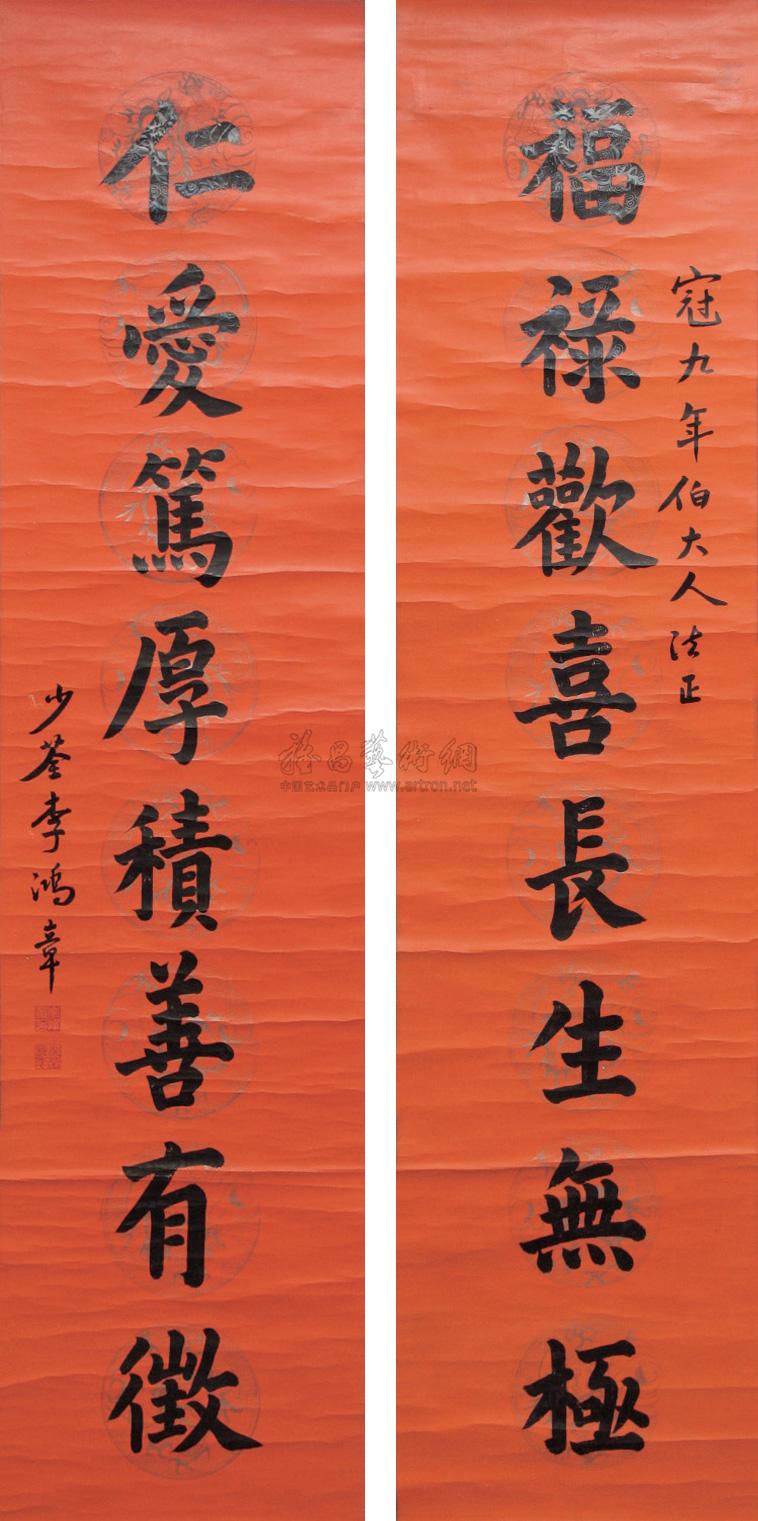 冠九年伯大人法正
福祿歡喜長生無極
仁愛篤厚積善有徵
少荃李鴻章
雅昌藝術網
中国艺术品门户 www.artron.net